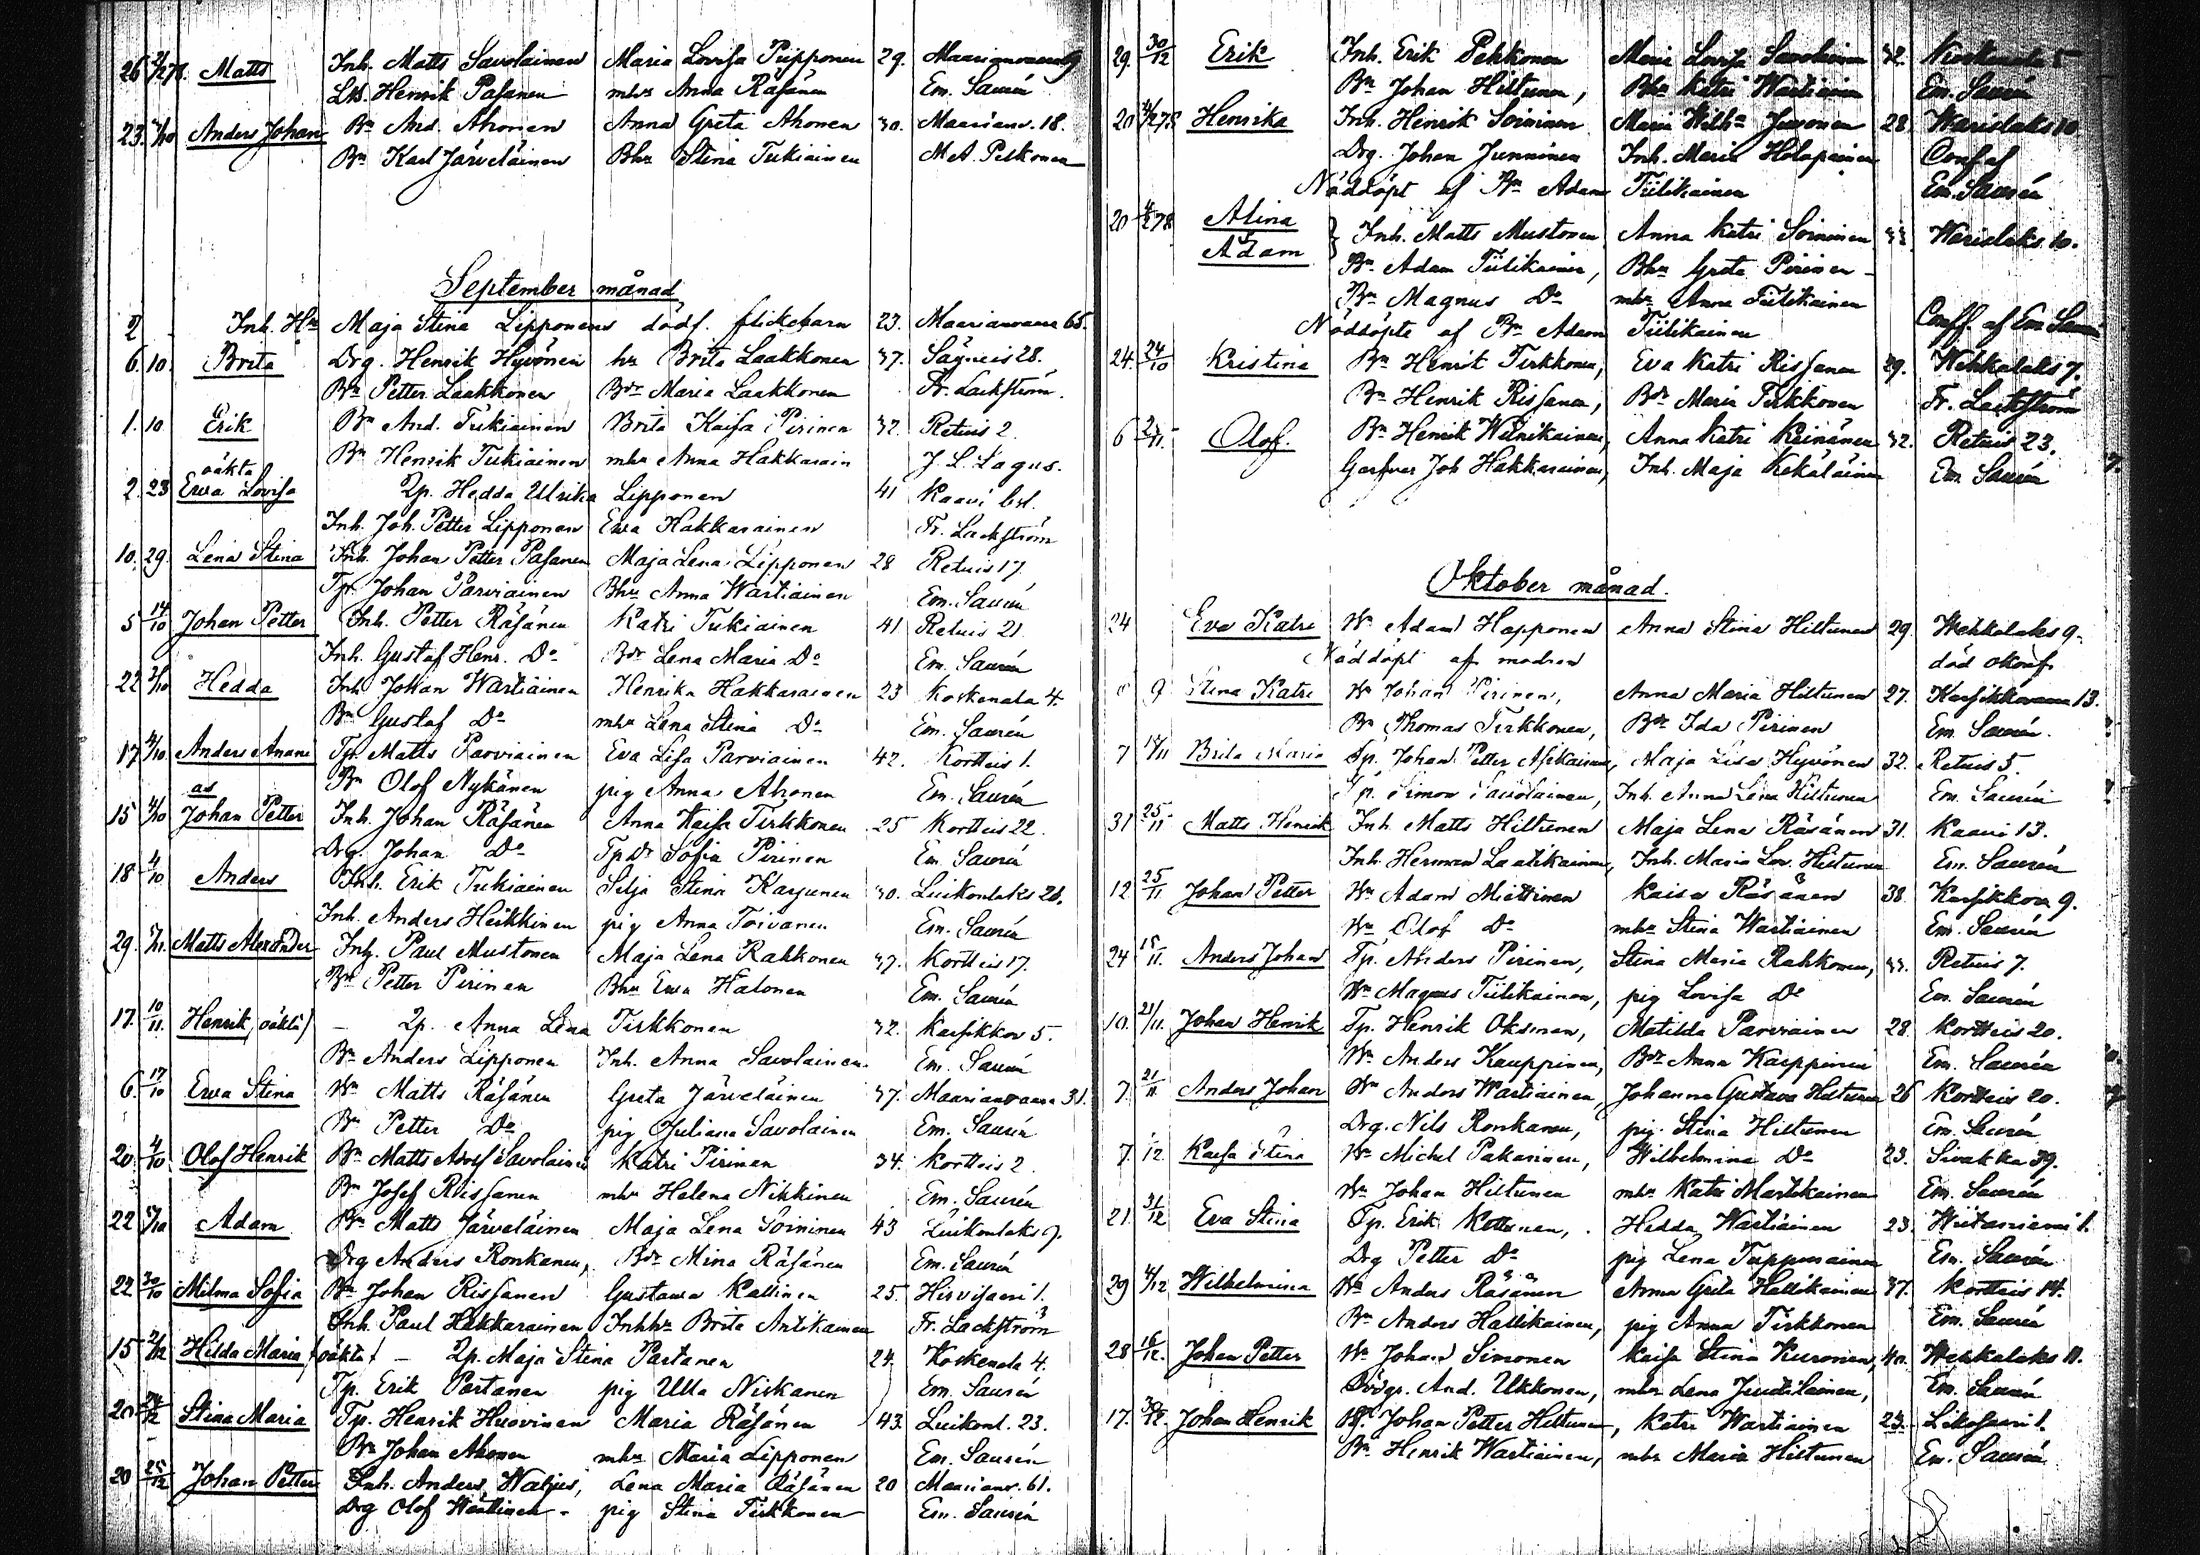 26 2/12 78. Matts Inh. Matts Savolainen Maria Lovisa Piipponen 29. Maarianvaara 9
Lks. Henrik Pasanen mhu Anna Räsänen Em. Saurén
23. 7/10 Anders Johan Bn And. Ahonen Anna Greta Ahonen 30. Maarianv. 18.
Bn Karl Järveläinen Bhu Stina Tukiainen M A. Pelkonen
September månad
2 Inh. Hu Maja Stina Lipponens dödf. flickebarn 23. Maarianvaara 65.
6. 10. Brita Drg. Henrik Hyvönen hu Brita Laakkonen 37. Säyneis 28.
Bn Petter Laakkonen Bdr Maria Laakkonen Fr. Lackström.
1. 10 Erik Bn And. Tukiainen Brita Kaisa Pirinen 32. Retuis 2.
Bn Henrik Tukiainen mhu Anna Hakkarain J. L. Lagus.
oäkta
2. 23 Ewa Lovisa Qp. Hedda Ulrika Lipponen 41 Kaavi bol.
Inh. Joh. Petter Lipponen Ewa Hakkarainen Fr. Lackström
10. 29. Lena Stina Inh. Johan Petter Pasanen Maja Lena Lipponen 28 Retuis 17.
Tp. Johan Parviainen Bhu Anna Wartiainen Em. Saurén
5 14/10 Johan Petter Inh. Petter Räsänen Katri Tukiainen 41 Retuis 21
Inh. Gustaf Henr. Do Bdr Lena Maria Do Em. Saurén
22 2/10 Hedda Inh Johan Wartiainen Henrika Hakkarainen 23 Koskenala 4.
Bn Gustaf Do mhu Lena Stina Do Em. Saurén
17 4/10 Anders Anani Tp. Matts Parviainen Eva Lisa Parviainen 42. Kortteis 1.
as Bn Olof Nykänen pig Anna Ahonen Em. Saurén
15 4/10 Johan Petter Inh. Johan Räsänen Anna Kaisa Tirkkonen 25 Kortteis 22.
Drg. Johan Do Tp Dr Sofia Pirinen Em. Saurén
18 4/10 Anders Inh. Erik Tukiainen Silja Stina Karjunen 30. Luikonlaks 26.
Inh. Anders Heikkinen pig Anna Toivanen Em. Saurén
29. Matts Alexander Inh. Paul Mustonen Maja Lena Rahkonen 37. Kortteis 17.
Bn Petter Pirinen Bhu Ewa Halonen Em. Saurén
17. 10/11. Henrik (oäkta) – Qp. Anna Lena Tirkkonen 32. Karsikkov 5.
Bn Anders Lipponen Inh. Anna Savolainen. Em. Saurén
6. 17/10 Ewa Stina Wn Matts Räsänen Greta Järveläinen 37. Maarianvaara 31.
Bn Petter Do pig Juliana Savolainen Em. Saurén
20. 4/10 Olof Henrik Bn Matts Adolf Savolainen Katri Pirinen 34. Kortteis 2.
Bn Josef Riissanen mhu Helena Nikkinen Em. Saurén
22 5/10 Adam Bn Matts Järveläinen Maja Lena Soininen 43 Luikonlaks 9.
Drg Anders Ronkanen, Bdr Mina Räsänen Em. Saurén
22 30/10 Milma Sofia Bn Johan Rissanen Gustawa Kallinen 25. Hirvisaari 1.
Inh. Paul Hakkarainen Inhhu Brita Antikainen Fr. Lackström
15 2/12 Hilda Maria (oäkta) – Qp. Maja Stina Partanen 24. Koskenala 4.
Tp. Erik Partanen pig Ulla Niskanen Em. Saurén
20 Stina Maria Tp. Henrik Huovinen Maria Räsänen 43. Luikonl. 23.
Bn Johan Ahonen mhu Maria Lipponen Em. Saurén
20 25/12 Johan Petter Inh. Anders Watjus, Lena Maria Räsänen 20 Maarianv. 61.
Drg Olof Wentinen – pig Stina Tirkkonen Em. Saurén
29. 30/12 Erik Inh. Erik Pekkonen Maria Lovisa Savolainen 32. Koskenala 5
Bn Johan Hiltunen, Bhu Katri Wartiainen Em. Saurén
20 Henrika Inh. Henrik Soininen Maria Wilha Juvonen 28 Warislaks 10
Drg. Johan Junninen Inh. Maria Holapainen Conf af
Nöddöpt af Bn Adam Tiilikainen Em. Saurén
20 Alina
Adam Inh. Matts Mustonen Anna Katri Soininen Warislaks 10.
Bn Adam Tiilikainen, Bhu Greta Pirinen –
Bn Magnus Do mhu Anna Tiilikainen
Nöddöpte af Bn Adam Tiilikainen Conff. af Em Saurén
24. 24/10 Kristina Bn Henrik Tirkkonen, Eva Katri Rissanen 29. Wehkalaks 7.
Bn Henrik Rissanen, Bdr Maria Tirkkonen Fr. Lackström
6 Olof. Bn Henrik Wänikainen, Anna Katri Keinänen 32. Retuis 23.
Garfver Joh Hakkarainen, Inh. Maja Kekäläinen Em. Saurén
Oktober månad.
24 Eva Katri Wn Adam Happonen Anna Stina Hiltunen 29 Wehkalaks 9.
Nöddöpt af modren död okonf.
9 Stina Katri Wn Johan Pirinen, Anna Maria Hiltunen 27. Karsikkovaara 13.
Bn Thomas Tirkkonen, Bdr Ida Pirinen Em. Saurén.
7 Brita Maria Tp. Johan Petter Asikainen, Maja Lisa Hyvönen 32. Retuis 5.
Tp. Simon Savolainen, Inh. Anna Lena Hiltunen Em. Saurén
31 25/11 Matts Henrik Inh Matts Hiltunen Maja Lena Räsänen 31. Kaavi 13.
Inh. Herman Laatikainen, Inh. Maria Lov. Hiltunen Em. Saurén
12 25/11 Johan Petter Wn Adam Miettinen Kaisa Räsänen 38. Karsikkov 9.
Wn Olof Do mhu Stina Wartiainen Em. Saurén
24 18/11. Anders Johan Tp. Anders Pirinen, Stina Maria Rahkonen, Retuis 7.
Wn Magnus Tiilikainen, pig Lovisa Do Em. Saurén
10. 21/11. Johan Henrik Tp. Henrik Oksman, Matilda Parviainen 28. Kortteis 20.
Wn Anders Kauppinen, Bdr Anna Kauppinen Em. Saurén
7. 21/11 Anders Johan Wn Anders Wartiainen, Johanna Gustava Hiltunen 26 Kortteis 20.
Drg. Nils Ronkanen, pig. Stina Hiltunen Em. Saurén
7. 1/12. Kaisa Stina Wn Michel Pakarinen, Wilhelmina Do 23. Sivakka 39.
Wn Johan Hiltunen mhu Katri Martikainen Em. Saurén
21. 3/12 Eva Stina Tp. Erik Kettunen, Hedda Wartiainen 23. Wiitaniemi 1.
Drg Petter Do pig Lena Tuppurainen Em. Saurén
29 4/12 Wilhelmina Wn Anders Räsänen Anna Greta Hallikainen 37. Kortteis 14.
Bn Anders Hallikainen, pig Anna Tirkkonen Em. Saurén
28 16/12. Johan Petter Wn Johan Simonen Kaisa Stina Kuronen, 40. Wehkalaks 11.
And. Ukkonen, mhu Lena Juutilainen, Em. Saurén
17. 30/12. Johan Henrik Johan Petter Hiltunen, Katri Wartiainen 23. Likosaari 1.
Bn Henrik Wartiainen, mhu Maria Hiltunen Em. Saurén